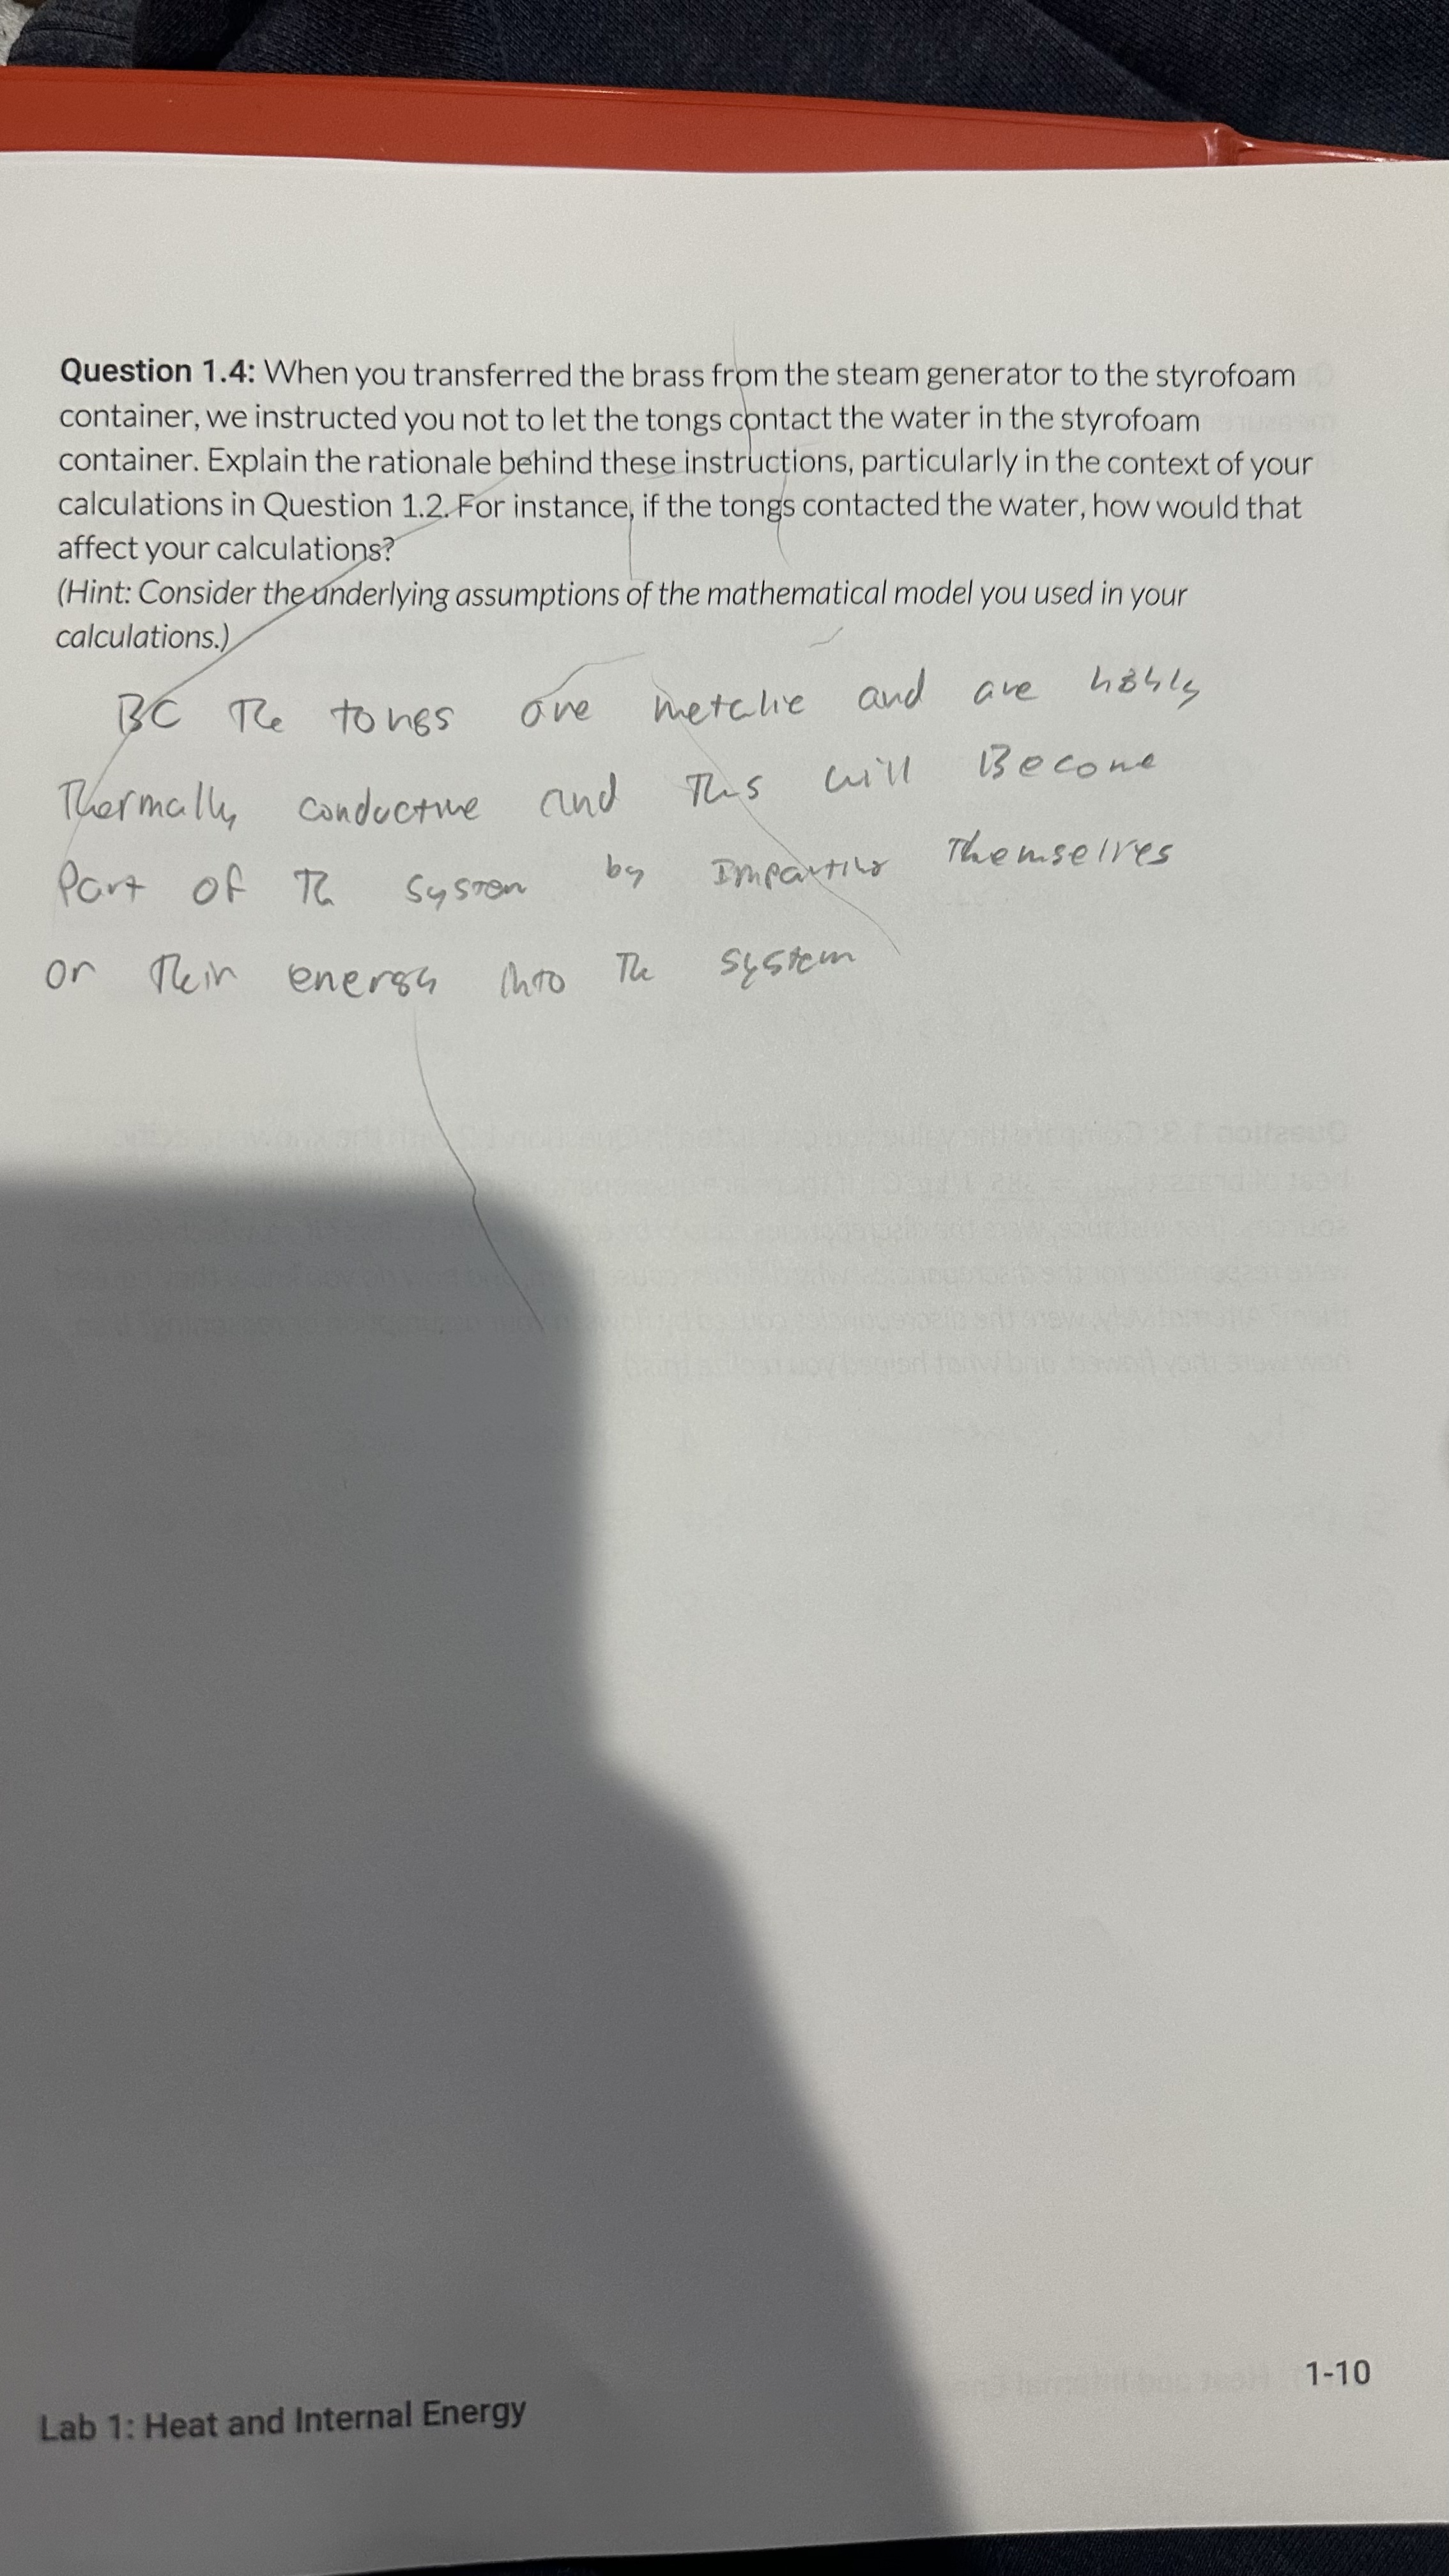 Question 1.4: When you transferred the brass from the steam generator to the styrofoam
container, we instructed you not to let the tongs contact the water in the styrofoam
container. Explain the rationale behind these instructions, particularly in the context of your
calculations in Question 1.2. For instance, if the tongs contacted the water, how would that
affect your calculations?
(Hint: Consider the underlying assumptions of the mathematical model you used in your
calculations.)
BC The tongs are metalic and are highly
Thermally conductive and This will Become
Part of Th system by Imparting Themselves
or Their energy into The system
1-10
Lab 1: Heat and Internal Energy